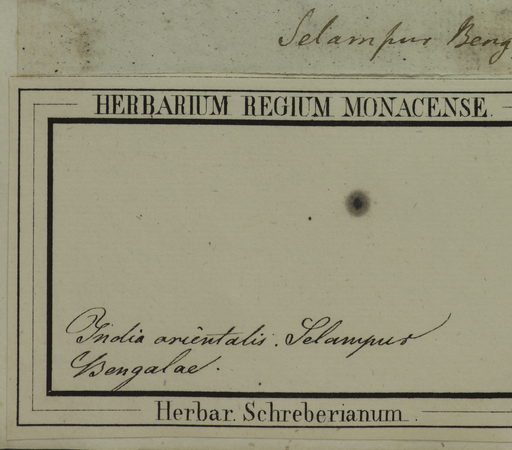 Selampur Beng
HERBARIUM REGIUM MONACENSE.
India orientalis. Selampur
Bengalae.
Herbar. Schreberianum.